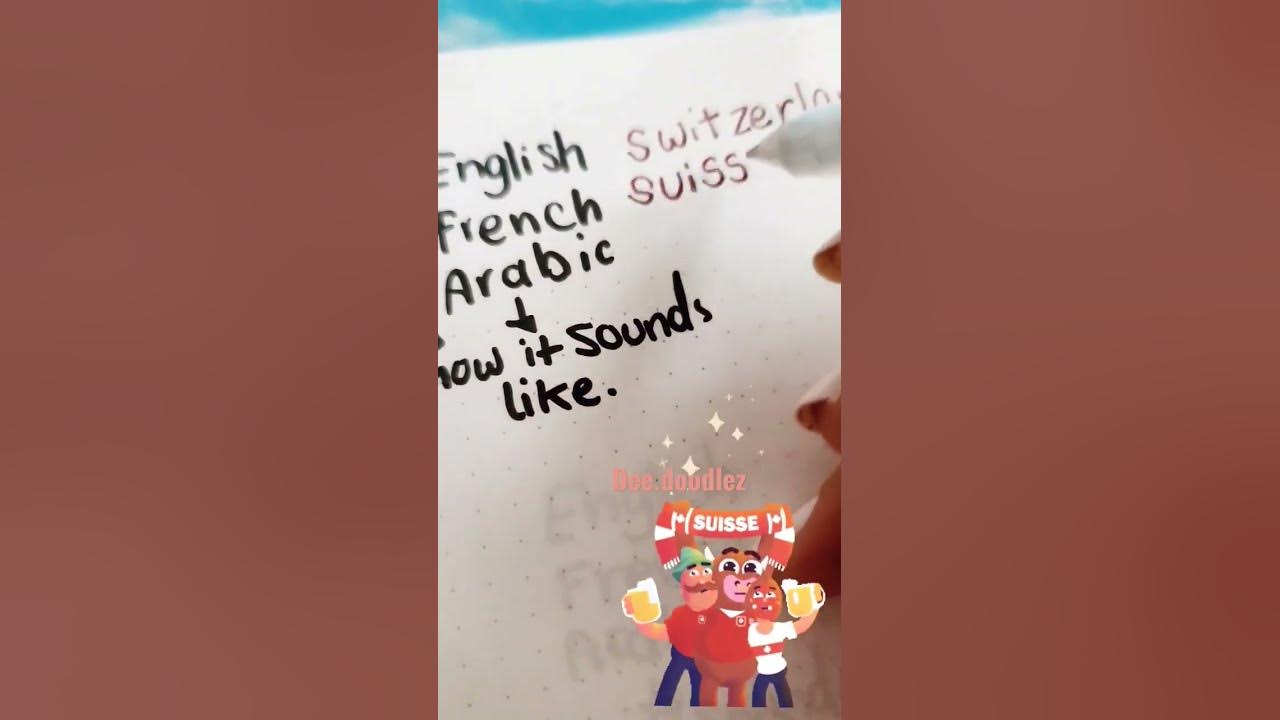 English switzerla
French suiss
Arabic
how it sounds
like.
Dee.doodlez
SUISSE